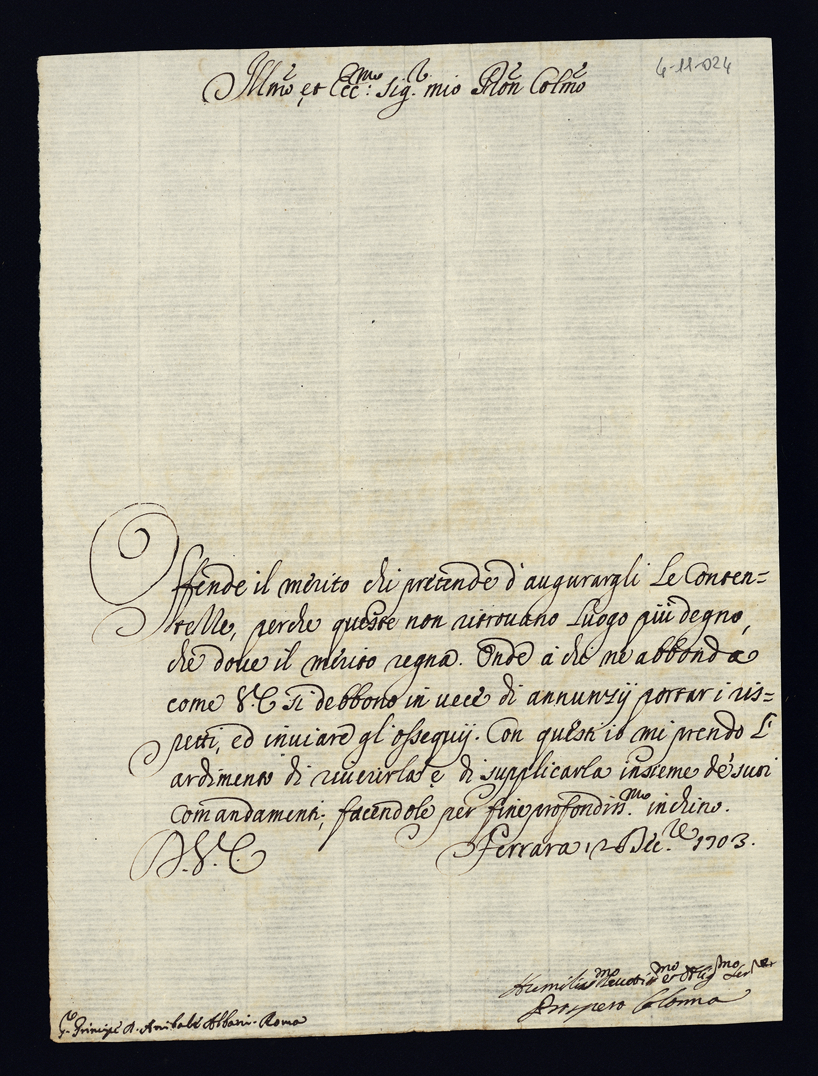 Illmo et Ecc:mo Sig.r mio Pron Colmo
4-11-024
Offende il merito chi pretende d'augurargli Le Conten=
tezze, perche queste non ritrovano Luogo più degno,
che doue il merito regna. Onde a chi ne abbonda
come V.E. si debbono in uece di annunzij portar i ris=
petti, ed inuiare gl'osseguij. Con questi io mi prendo L'
ardimento di riuerirla e di supplicarla insieme de' suoi
comandamenti; facendole per fine profondiss.mo inchino.
D.V.E.
Ferrara 12 Dec.re 1703.
Humilissmo Deuotissmo et Obligmo Ser.r
Prospero Colonna
Principe D. Anibale Albani. Roma